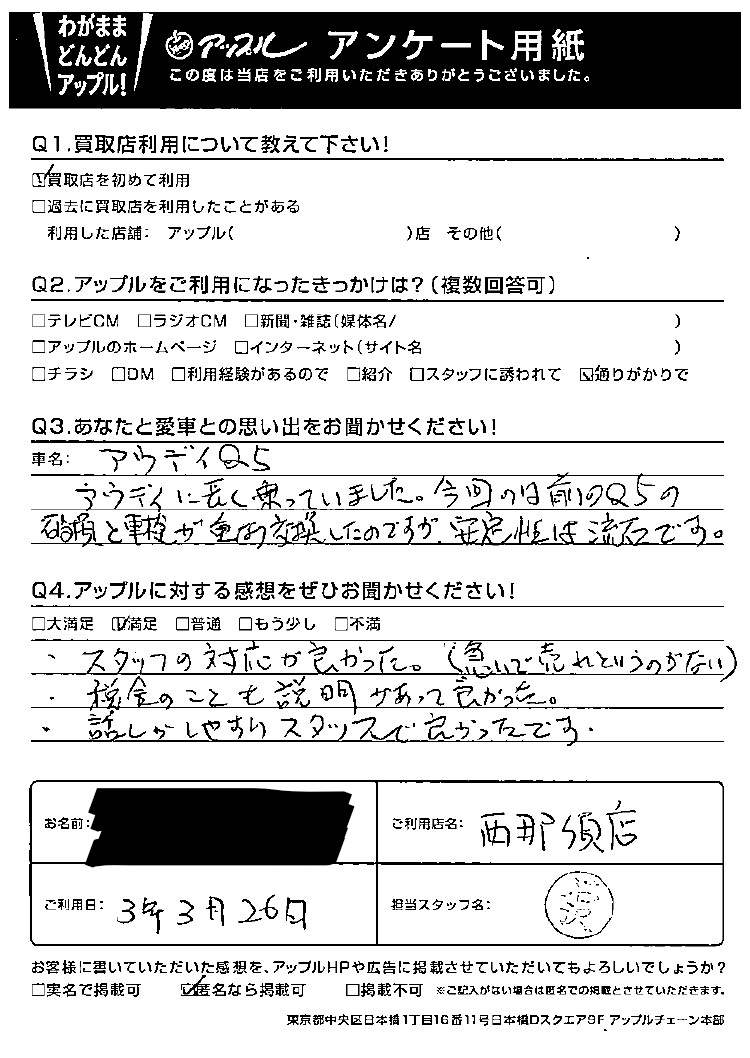 わがまま
どんどん
アップル!
アップル アンケート用紙
この度は当店をご利用いただきありがとうございました。
Q1.買取店利用について教えて下さい!
☑買取店を初めて利用
□過去に買取店を利用したことがある
利用した店舗: アップル( )店 その他( )
Q2.アップルをご利用になったきっかけは?(複数回答可)
□テレビCM □ラジオCM □新聞・雑誌(媒体名/ )
□アップルのホームページ □インターネット(サイト名 )
□チラシ □DM □利用経験があるので □紹介 □スタッフに誘われて ☑通りがかりで
Q3.あなたと愛車との思い出をお聞かせください!
車名: アウディQ5
アウディに長く乗っていました。今回のは前のQ5の
破損と車検が重なり交換したのですが、安定性は流石です。
Q4.アップルに対する感想をぜひお聞かせください!
□大満足 ☑満足 □普通 □もう少し □不満
・スタッフの対応が良かった。(急いで売れというのがない)
・税金のことも説明があって良かった。
・話しがしやすいスタッフで良かったです.
お名前:
ご利用店名: 西那須店
ご利用日: 3年3月26日
担当スタッフ名:
お客様に書いていただいた感想を、アップルHPや広告に掲載させていただいてもよろしいでしょうか?
□実名で掲載可 ☑匿名なら掲載可 □掲載不可 ※ご記入がない場合は匿名での掲載とさせていただきます。
東京都中央区日本橋1丁目16番11号日本橋Dスクエア9F アップルチェーン本部